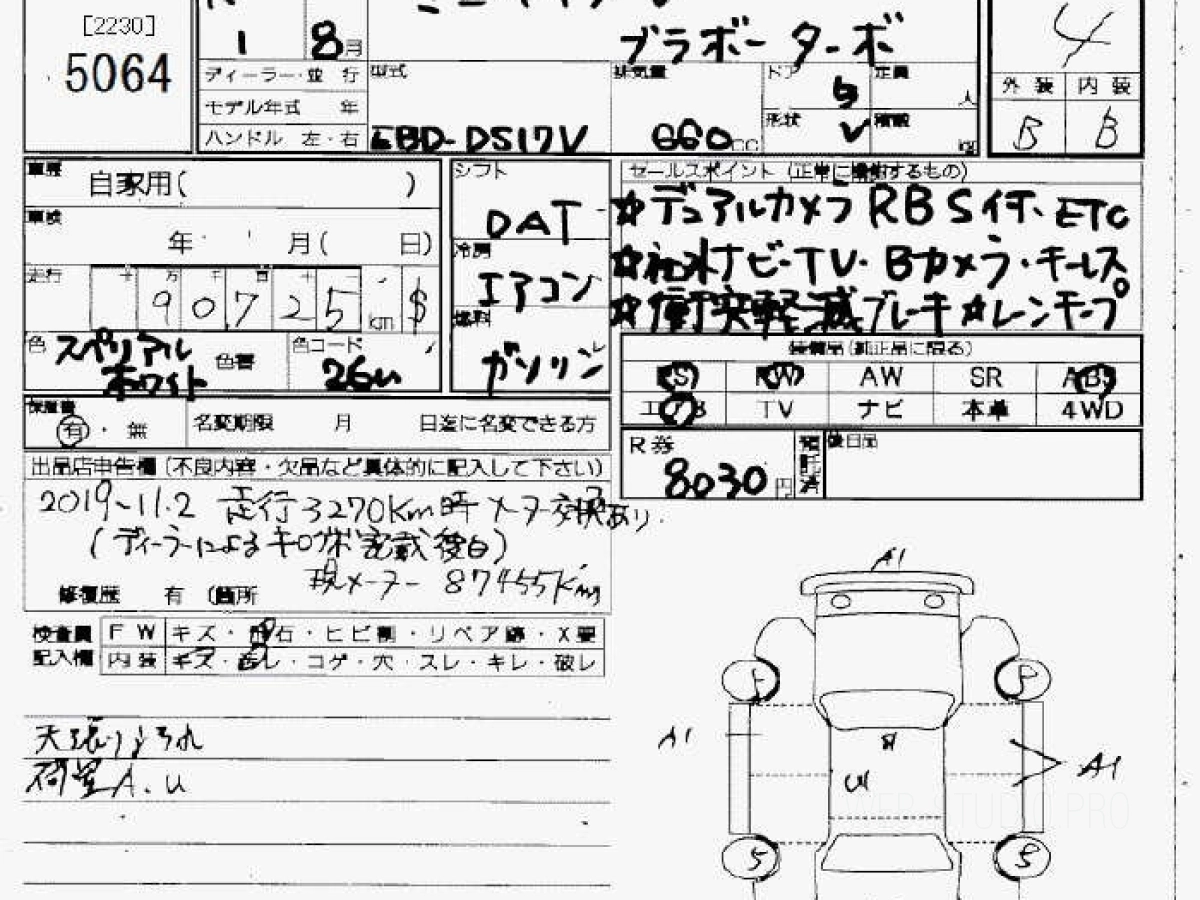 [2230]
5064
1 8月
ブラボー ターボ
4
ディーラー・並行
型式
排気量
ドア 5
定員 人
外装 内装
モデル年式 年
形状 V
積載 kg
ハンドル 左・右
EBD-DS17V
660cc
B B
車歴
自家用( )
シフト
DAT
セールスポイント(正常に機能するもの)
☆デュアルカメラ RBSイチ、ETC
車検
年 月( 日)
冷房
エアコン
☆社外ナビ・TV・Bカメラ・キーレス
走行 十 万 千 百 十
90,725 km $
燃料
ガソリン
☆衝突軽減ブレーキ☆レーンキープ
色 スペリアル
ホワイト
色替
色コード
26U
装備品(純正品に限る)
PS PW AW SR ABS
エアB TV ナビ 本革 4WD
保証書
有・無
名変期限 月 日迄に名変できる方
R券
8030円
預託済
後日品
出品店申告欄(不良内容・欠品など具体的に記入して下さい)
2019-11.2 走行3270Km時 メーター交換あり
(ディーラーによるキロ数記載後日)
現メーター 87455Km
修復歴 有 (箇所
検査員 FW キズ・飛石・ヒビ割・リペア跡・X要
記入欄 内装 キズ・汚レ・コゲ・穴・スレ・キレ・破レ
天張りよごれ
荷室A.U
A1
A1
A1
U
5
5
WEB STUDIO PRO